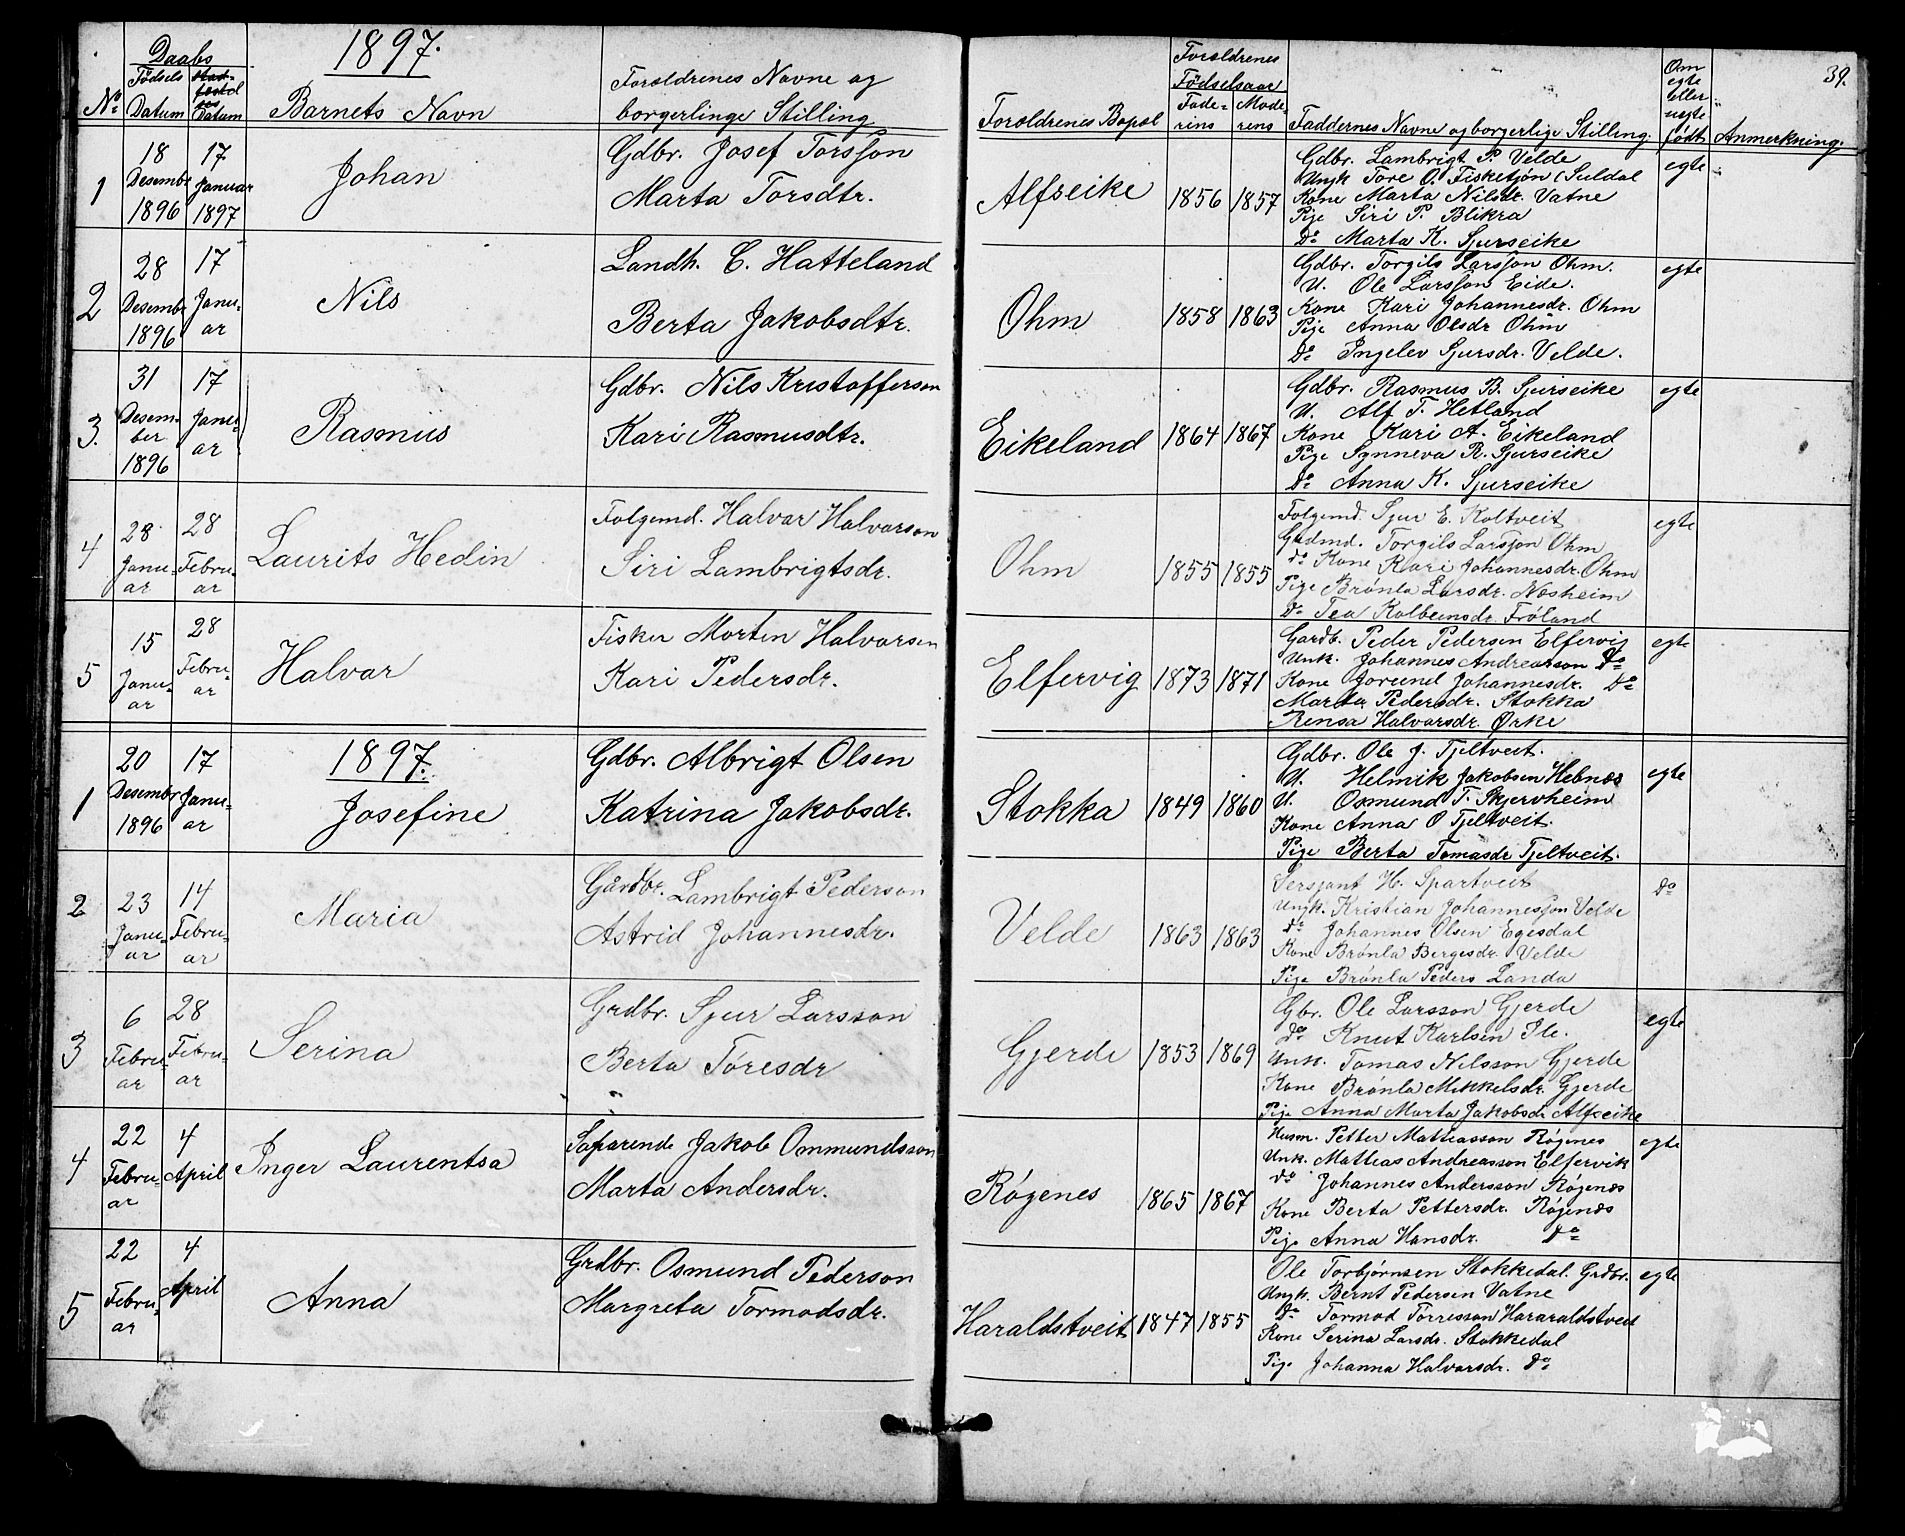 39.
1897.
No Fødsels Datum Daabs Datum Barnets Navn Foroldrenes Navne og borgerlinge Stilling Foroldrenes Bopæl Foroldrenes Fødselsaar Faderins Moderens Faddernes Navne og borgerlige Stilling. Om egte eller uegte født Anmerkning.
1 18 Desembr 1896 17 Januar 1897 Johan
Gdbr. Josef Torsson
Marta Torsdtr.
Alfseike 1856 1857
Gdbr. Lambrigt P. Velde
Ungk Tore O. Fisketjøn (Suldal
Kone Marta Nilsdr. Vatne
Pije Siri P. Blikra
Do Marta K. Sjurseike
egte
2 28 Desembr 1896 17 Janu-ar Nils
Landh. C. Hatteland
Berta Jakobsdtr.
Ohm 1858 1863
Gdbr. Torgils Larsson Ohm.
U. Ole Larsson Eide.
Kone Kari Johannesdr. Ohm
Pije Anna Olsdr Ohm
Do Ingelev Sjursdr. Velde.
egte
3. 31 Desem-ber 1896 17 Janu-ar Rasmus
Gdbr. Nils Kristofferson
Kari Rasmusdtr.
Eikeland 1864 1867
Gdbr. Rasmus B. Sjurseike
U. Alf T. Hetland
Kone Kari A. Eikeland
Pige Synneva R. Sjurseike
Do Anna K. Sjurseike
egte
4 28 Janu-ar 28 Febru-ar Laurits Hedin
Folgemd. Halvar Halvarson
Siri Lambrigtsdr.
Ohm 1855 1855
Folgemd. Sjur E. Koltveit
Grdmd. Torgils Larsson Ohm
do Kone Kari Johannesdr. Ohm
Pige Brønla Larsdr. Næsheim
Do Tea Kolbeinsdr. Frøland
egte
5 15 Janu-ar 28 Febru-ar Halvar
Fisker Morten Halvorsen
Kari Pedersdr.
Elfervig 1873 1871
Gardb. Peder Pedersen Elfervig
Unk. Johannes Andreasson Do
Kone Jorund Johannesdr. Do
Marta Pedersdr. Stokka
Rensa Halvarsdr. Ørke
egte
1897.
1 20 Desembr 1896 17 Janu-ar Josefine
Gdbr. Albrigt Olsen
Katrina Jakobsdr.
Stokka 1849 1860
Gdbr. Ole J. Tjeltveit.
U. Helmik Jakobsen Hebnes
U. Osmund T. Skjerveheim
Kone Anna O Tjeltveit.
Pige Berta Tomasdr Tjeltveit.
egte
2 23 Janu-ar 14 Febru-ar Maria
Gårdbr. Lambrigt Pederson
Astrid Johannesdr.
Velde 1863 1863
Sersjant H. Spartveit
Ungk. Kristian Johannesson Velde
do Johannes Olsen Egesdal
Kone Brønla Bergesdr. Velde
Pige Brønla Peders Landa
Do
3 6 Febru-ar 28 Febru-ar Serina
Grdbr. Sjur Larsson
Berta Toresdr
Gjerde 1853 1869
Gbr. Ole Larsson Gjerde
do Knut Karlsen Ile.
Unk. Tomas Nilsson Gjerde
Kone Brønla Mikkelsdr. Gjerde
Pije Anna Marta Jakobsdr Alfseike
egte
4 22 Febru-ar 4 April Inger Laurentsa
Søfarende Jakob Ommundsson
Marta Andersdr.
Røgenes 1865 1867
Husm. Petter Mathiasson Røgenes
Unk. Mathias Andreasson Elfervik
do Johannes Andersson Røgenæs
Kone Berta Pettersdr. Røgenæs
Pije Anna Hansdr. Do
egte
5 22 Febru-ar 4 April Anna
Grdbr. Osmund Pederson
Margreta Tormodsdr.
Haraldstveit 1847 1855
Ole Torbjørnsen Stokkedal. Grdbr.
Ungk. Bernt Pedersen Vatne
do Tormod Torresson Hararaldstveit
Kone Serina Larsdr. Stokkedal
Pige Johanna Halvarsdr. do
egte